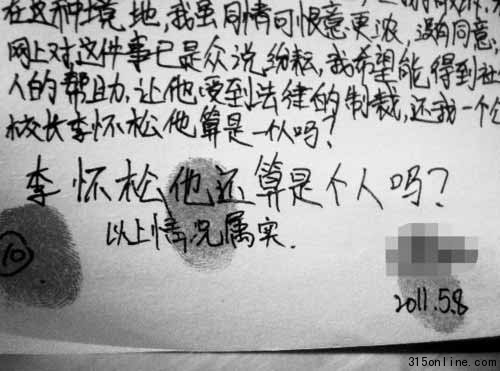 在这种境地,我虽同情可恨意更浓,没有同意,
网上对这件事已是众说纷耘,我希望能得到社
人的帮助,让他受到法律的制裁,还我一个公
校长李怀松他算是一个人吗?
李怀松他还算是个人吗?
以上情况属实.
10
2011.5.8
315online.com